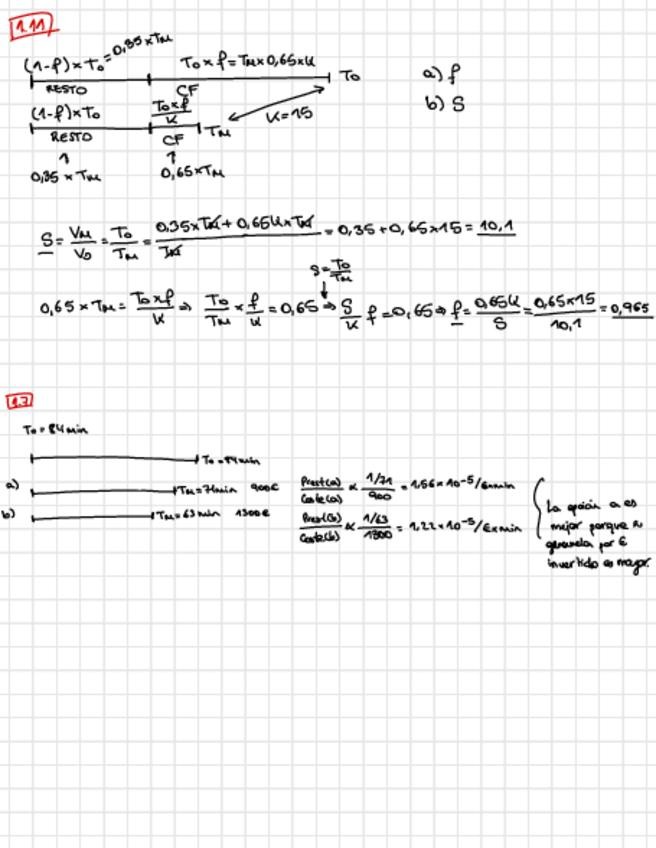 1.11
(1-f)×To=0,35×TM To×f=TM×0,65×K To
RESTO CF
a) f
b) S
(1-f)×To To×f/K TM K=15
RESTO CF
0,35×TM 0,65×TM
S=VM/Vo=To/TM=0,35×TM+0,65K×TM/TM=0,35+0,65×15=10,1
S=To/TM
0,65×TM=To×f/K⇒To/TM×f/K=0,65⇒S/K f=0,65⇒f=0,65K/S=0,65×15/10,1=0,965
1.7
To=84min
To=84min
a) TM=71min 900€ Prest(a)/Coste(a) ∝ 1/71/900=1,56×10⁻⁵/€×min
b) TM=63min 1300€ Prest(b)/Coste(b) ∝ 1/63/1300=1,22×10⁻⁵/€×min
La opción a es
mejor porque
por €
invertido es mayor.